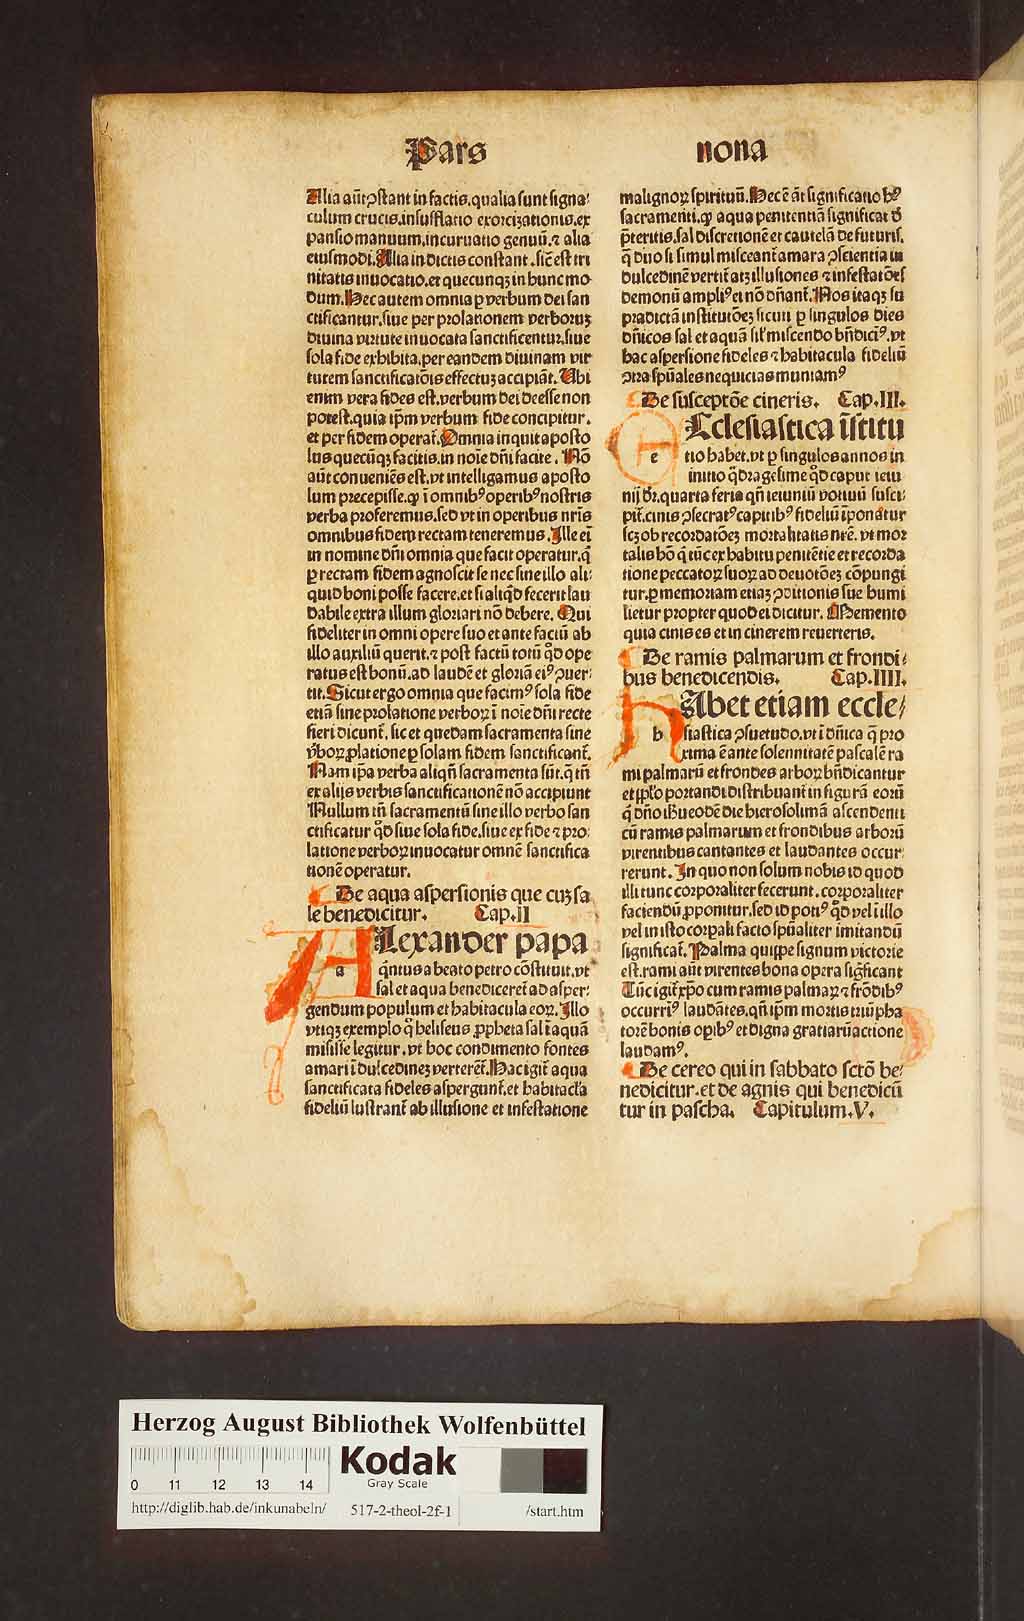 Pars
nona
Alia aūt ꝯstant in factis. qualia sunt signa⸗
culum crucis. insufflatio exorcizationis. ex
pansio manuum. incuruatio genuū. ⁊ alia
eiusmodi. Alia in dictis constant. sic̄ est tri
nitatis inuocatio. et quecunqꝫ in hunc mo
dum. Hec autem omnia ꝑ verbum dei san
ctificantur. siue per prolationem verboruꝫ
diuina virtute inuocata sanctificentur. siue
sola fide exhibita. per eandem diuinam vir
tutem sanctificatōis effectuꝫ accipiāt. Ubi
enim vera fides est. verbum dei deesse non
potest. quia ip̄m verbum fide concipitur.
et per fidem operat̄. Omnia inquit aposto
lus quecūqꝫ facitis. in noīe dn̄i facite. Nō
aūt conueniēs est. vt intelligamus aposto
lum precepisse. ꝙ ī omnibꝰ operibꝰ nostris
verba proferemus. sed vt in operibus nr̄is
omnibus fidem rectam teneremus. Ille eī
in nomine dn̄i omnia que facit operatur. q̄
ꝑ rectam fidem agnoscit se nec sine illo ali⸗
quid boni posse facere. et si aliqͥd fecerit lau
dabile extra illum gloriari nō debere. Qui
fideliter in omni opere suo et ante factū ab
illo auxiliū querit. ⁊ post factū totū qͦd ope
ratus est bonū. ad laudē et gloriā eiꝰ ꝯuer⸗
tit. Sicut ergo omnia que facimꝰ sola fide
etiā sine prolatione verboꝝ ī noīe dn̄i recte
fieri dicunt̄. sic et quedam sacramenta sine
v̓boꝝ ꝓlatione ꝑ solam fidem sanctificant̄.
Nam ip̄a verba aliqn̄ sacramenta sūt. q̄ tn̄
ex alijs verbis sanctificationē nō accipiunt
Nullum tn̄ sacramentū sine illo verbo san
ctificatur qͦd siue sola fide. siue ex fide ⁊ pro⸗
latione verboꝝ inuocatur omnē sanctifica
tionē operatur.
De aqua aspersionis que cuꝫ sa
le benedicitur. Cap. II
ALexander papa
a qͥntus a beato petro cōstituit. vt
sal et aqua benediceret̄ ad asper⸗
gendum populum et habitacula eoꝝ. Illo
vtiqꝫ exemplo qͦ heliseus ꝓpheta sal ī aquā
misisse legitur. vt hoc condimento fontes
amari ī dulcedineꝫ verterēt. Hac igit̄ aqua
sanctificata fideles aspergunt̄. et habitacl̓a
fideliū lustrant̄ ab illusione et infestatione
malignoꝝ spirituū. Hec ē āt significatio hꝰ
sacramenti. ꝙ aqua penitentiā significat d̓
p̄teritis. sal discretionē et cautelā de futuris.
q̄ duo si simul misceant̄ amara ꝯscientia in
dulcedinē vertit̄ atꝫ illusiones ⁊ infestatōes
demonū ampliꝰ ei nō dn̄ant̄. Nos itaqꝫ su
pradictā institutōeꝫ sicuti ꝑ singulos dies
dn̄icos sal et aquā sil̓ miscendo bn̄dicīꝰ. vt
hac aspersione fideles ⁊ habitacula fideliū
ꝯtra spūales nequicias muniamꝰ
De susceptōe cineris. Cap. III.
EClesiastica īstitu
e tio habet. vt ꝑ singulos annos in
initio qͣdragesime qͦd caput ieiu
nij dr̄. quarta feria qn̄ ieiuniū votiuū susci⸗
pit̄. cinis ꝯsecratꝰ capitibꝰ fideliū īponatur
scꝫ ob recordatōeꝫ mortalitatis nr̄e. vt mor
talis hō q̄ tūc ex habitu penitētie et recorda
tione peccatoꝝ suoꝝ ad deuotōeꝫ cōpungi
tur. ꝑ memoriam etiaꝫ ꝯditionis sue humi
lietur propter quod ei dicitur. Memento
quia cinis es et in cinerem reuerteris.
De ramis palmarum et frondi⸗
bus benedicendis. Cap. IIII.
HAbet etiam eccle⸗
h siastica ꝯsuetudo. vt ī dn̄ica q̄ pro
xima ē ante solennitatē pascalē ra
mi palmarū et frondes arboꝝ bn̄dicantur
et ppl̓o portandi distribuant̄ in figurā eorū
q̄ dn̄o iħu eodē die hierosolimā ascendenti
cū ramis palmarum et frondibus arborū
virentibus cantantes et laudantes occur⸗
rerunt. In quo non solum nobis id quod
illi tunc corporaliter fecerunt. corporaliter
faciendū ꝓponitur. sed id potiꝰ qͦd vel ī illo
vel in isto corꝑali facto spūaliter imitandū
significat̄. Palma quippe signum victorie
est. rami aūt virentes bona opera sigͥficant
Tūc igit̄ xp̄o cum ramis palmaꝝ ⁊ frōdibꝰ
occurrīꝰ laudātes. qn̄ ip̄m mortis triūpha
torē bonis oꝑibꝰ et digna gratiarū actione
laudamꝰ.
De cereo qui in sabbato sctō be⸗
nedicitur. et de agnis qui benedicū
tur in pascha. Capitulum. V.
Herzog August Bibliothek Wolfenbüttel
Kodak
Gray Scale
0 11 12 13 14
http://diglib.hab.de/inkunabeln/ 517-2-theol-2f-1 /start.htm